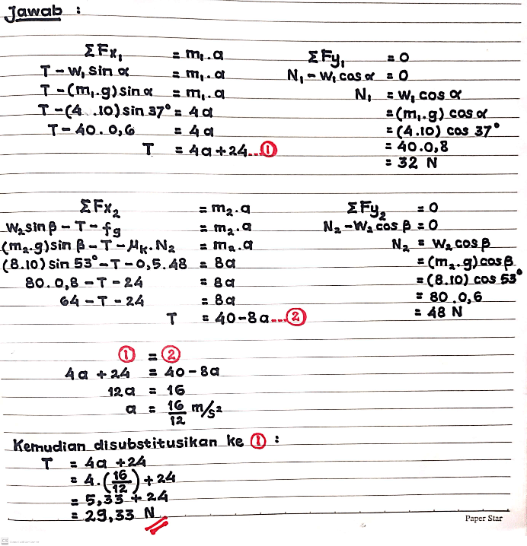 Jawab :
ΣFx₁ = m₁.a
T - w₁ sin α = m₁.a
T - (m₁.g) sin α = m₁.a
T - (4 .10) sin 37° = 4a
T - 40. 0,6 = 4a
T = 4a + 24...①
ΣFy₁ = 0
N₁ - w₁ cos α = 0
N₁ = w₁ cos α
= (m₁.g) cos α
= (4.10) cos 37°
= 40.0,8
= 32 N
ΣFx₂ = m₂.a
W₂ sin β - T - fg = m₂.a
(m₂.g) sin β - T - μₖ. N₂ = m₂.a
(8.10) sin 53° - T - 0,5.48 = 8a
80. 0,8 - T - 24 = 8a
64 - T - 24 = 8a
T = 40 - 8a...②
ΣFy₂ = 0
N₂ - W₂ cos β = 0
N₂ = W₂ cos β
= (m₂.g) cos β
= (8.10) cos 53°
= 80 .0,6
= 48 N
① = ②
4a + 24 = 40 - 8a
12a = 16
a = 16/12 m/s²
Kemudian disubstitusikan ke ① :
T = 4a + 24
= 4. (16/12) + 24
= 5,33 + 24
= 29,33 N
Paper Star